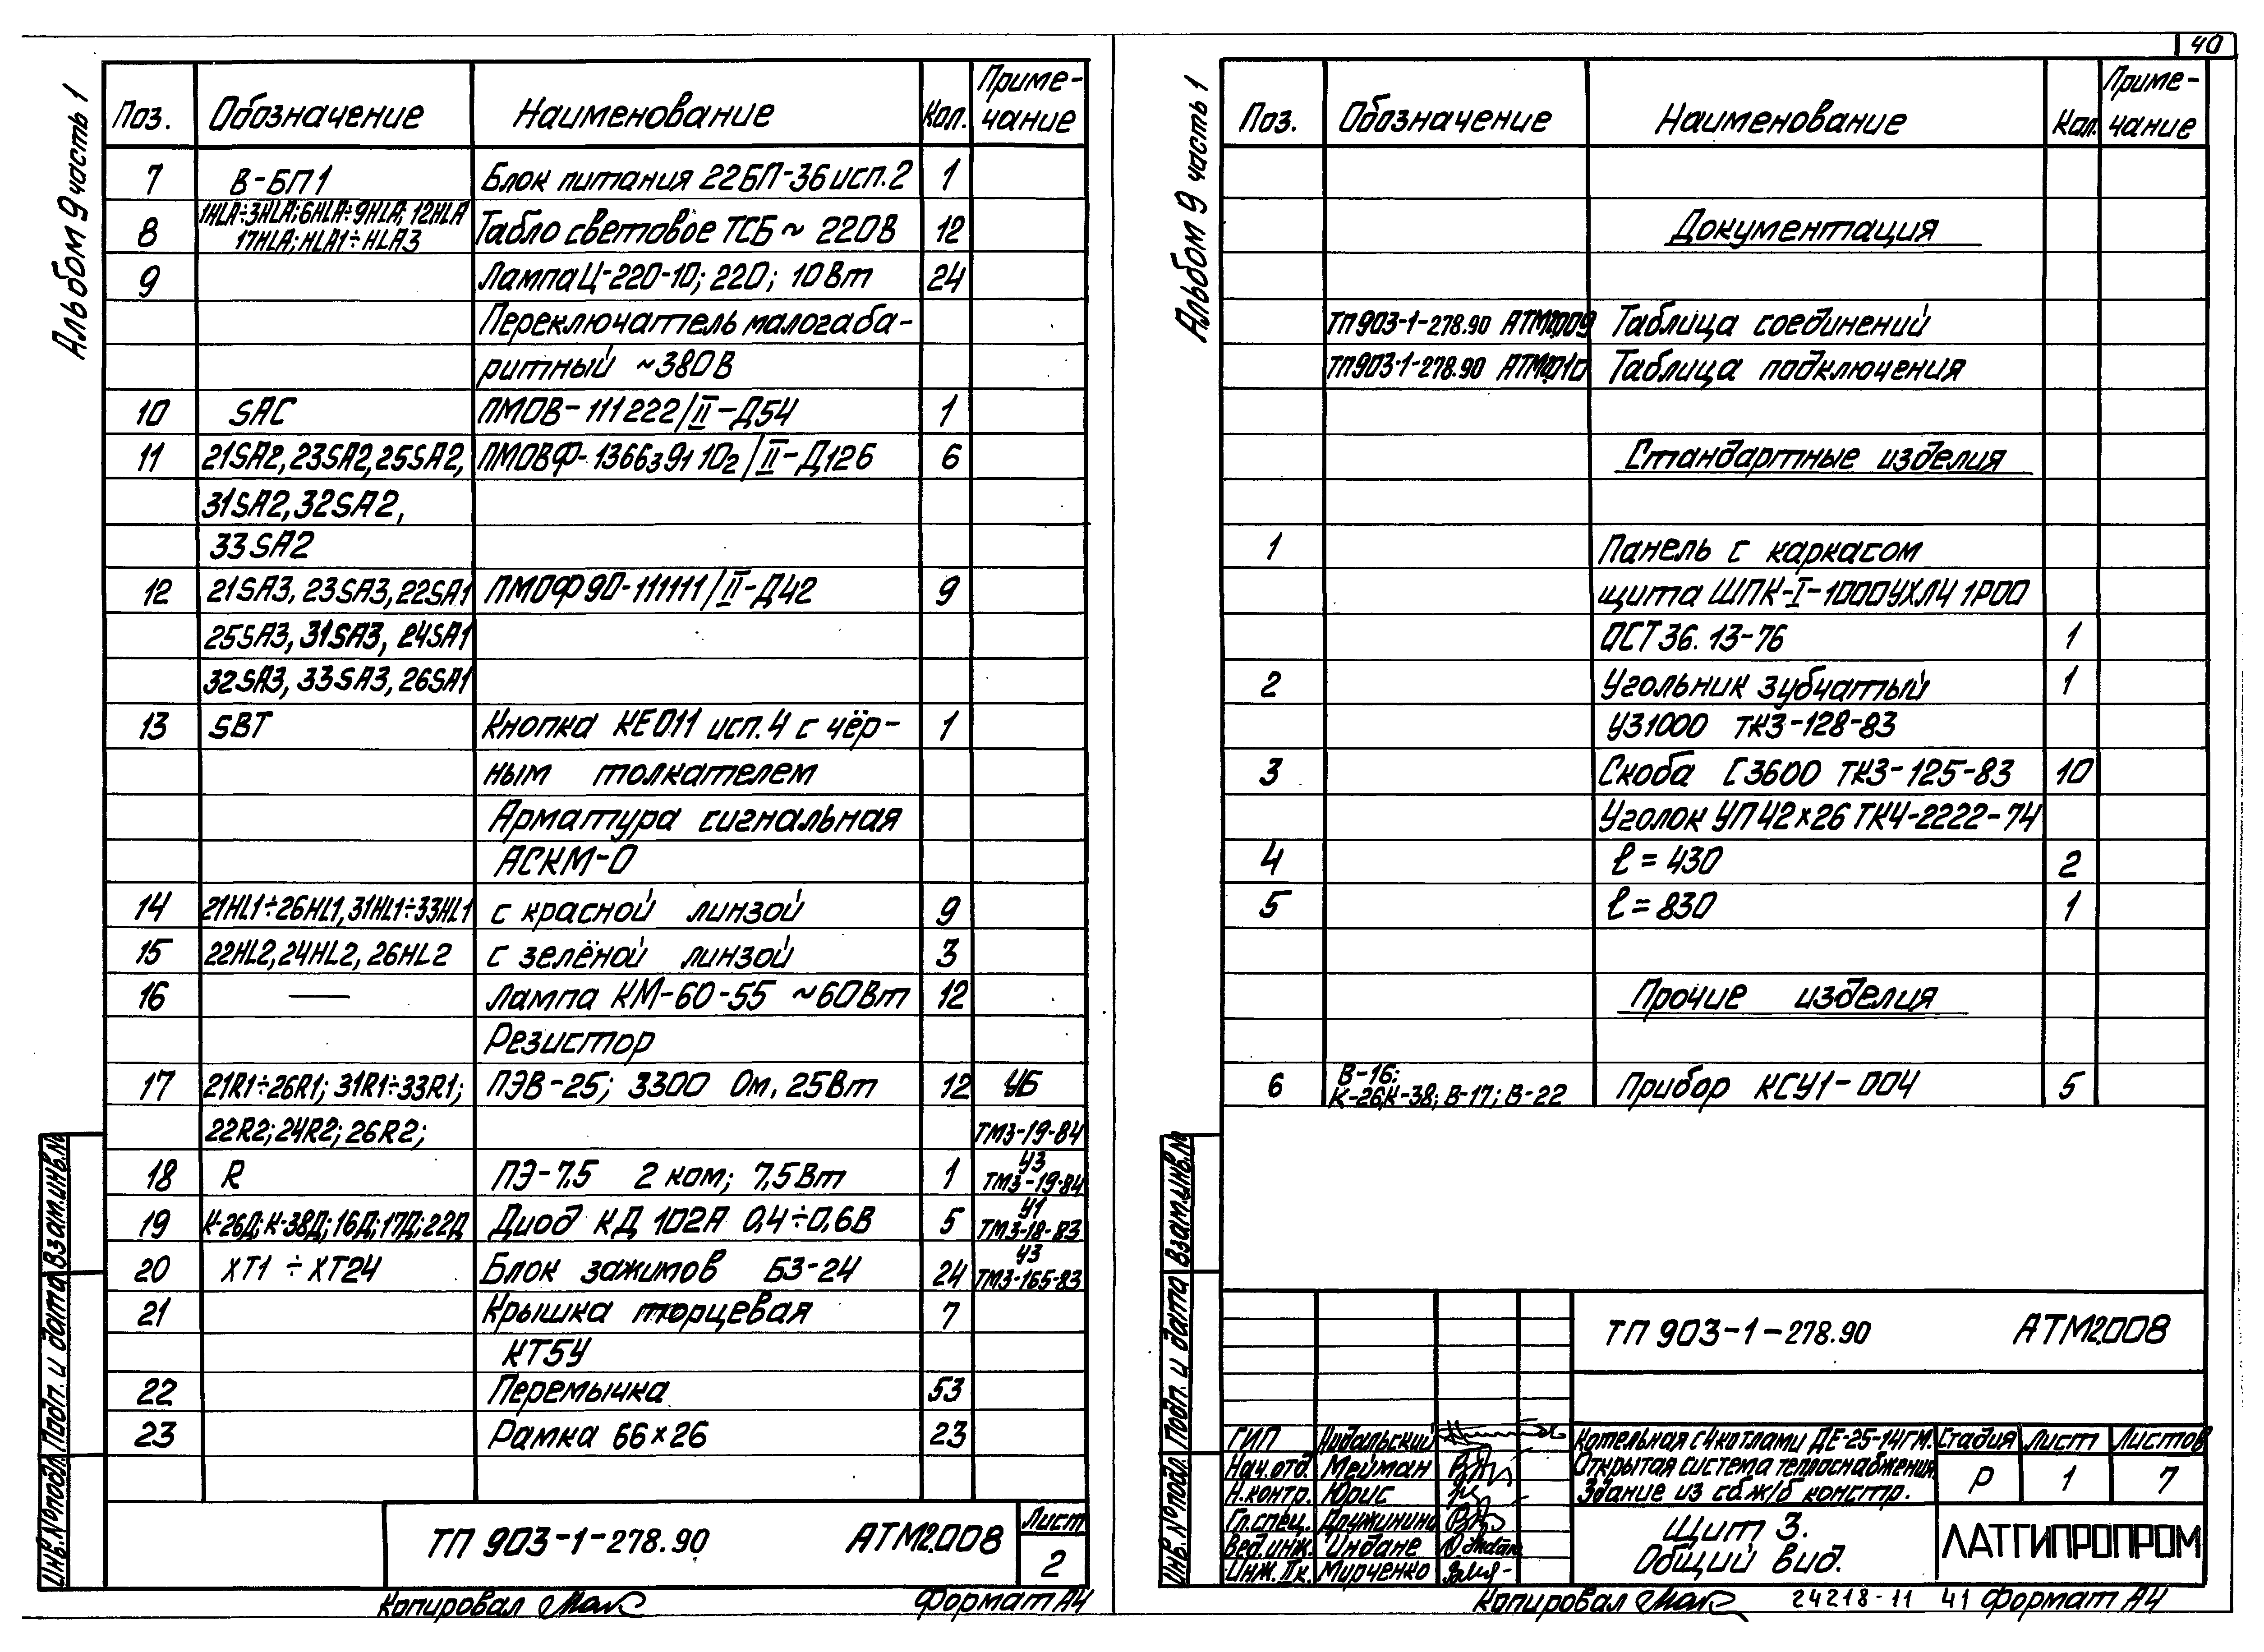 40
Альбом 9 часть 1
Поз. Обозначение Наименование Кол. Приме-чание
7 В-БП1 Блок питания 22БП-36 исп.2 1
1HLA÷3HLA; 6HLA÷9HLA; 12HLA
8 17HLA; HLA1÷HLA3 Табло световое ТСБ ~ 220В 12
9 Лампа Ц-220-10; 220; 10Вт 24
Переключатель малогаба-
ритный ~380В
10 SAC ПМОВ-111222/II-Д54 1
11 21SA2, 23SA2, 25SA2, ПМОВФ-1366391102/II-Д126 6
31SA2, 32SA2,
33SA2
12 21SA3, 23SA3, 22SA1 ПМОФ90-111111/II-Д42 9
25SA3, 31SA3, 24SA1
32SA3, 33SA3, 26SA1
13 SBT Кнопка КЕ011 исп.4 с чёр- 1
ным толкателем
Арматура сигнальная
АСКМ-0
14 21HL1÷26HL1, 31HL1÷33HL1 с красной линзой 9
15 22HL2, 24HL2, 26HL2 с зелёной линзой 3
16 — Лампа КМ-60-55 ~60Вт 12
Резистор
17 21R1÷26R1; 31R1÷33R1; ПЭВ-25; 3300 Ом, 25Вт 12 УБ
22R2; 24R2; 26R2; ТМ3-19-84
18 R ПЭ-7,5 2 ком; 7,5Вт 1 У3 ТМ3-19-84
19 К-26Д; К-38Д; 16Д; 17Д; 22Д Диод КД 102А 0,4÷0,6В 5 У1 ТМ3-18-83
20 ХТ1 ÷ ХТ24 Блок зажимов БЗ-24 24 У3 ТМ3-165-83
21 Крышка торцевая 7
КТ5У
22 Перемычка 53
23 Рамка 66×26 23
Инв.№подл. Подп. и дата Взам.инв.№
ТП 903-1-278.90 АТМ2.008 Лист
2
Копировал Формат А4
Альбом 9 часть 1
Поз. Обозначение Наименование Кол. Приме-чание
Документация
ТП903-1-278.90 АТМ2.009 Таблица соединений
ТП903-1-278.90 АТМ2.010 Таблица подключения
Стандартные изделия
1 Панель с каркасом
щита ЩПК-I-1000УХЛ4 1Р00
ОСТ36.13-76 1
2 Угольник зубчатый 1
УЗ1000 ТК3-128-83
3 Скоба С3600 ТК3-125-83 10
Уголок УП42×26 ТК4-2222-74
4 ℓ = 430 2
5 ℓ = 830 1
Прочие изделия
В-16;
6 К-26; К-38; В-17; В-22 Прибор КСУ1-004 5
Инв.№подл. Подп. и дата Взам.инв.№
ТП 903-1-278.90 АТМ2.008
ГИП Нидальский Котельная с 4 котлами ДЕ-25-14ГМ. Стадия Лист Листов
Нач.отд. Мейман Открытая система теплоснабжения.
Н.контр. Юрис Здание из сб.ж/б констр. Р 1 7
Гл.спец. Дружинина Щит 3.
Вед.инж. Индане Общий вид. ЛАТГИПРОПРОМ
Инж. IIк. Мурченко
Копировал 24218-11 41 Формат А4